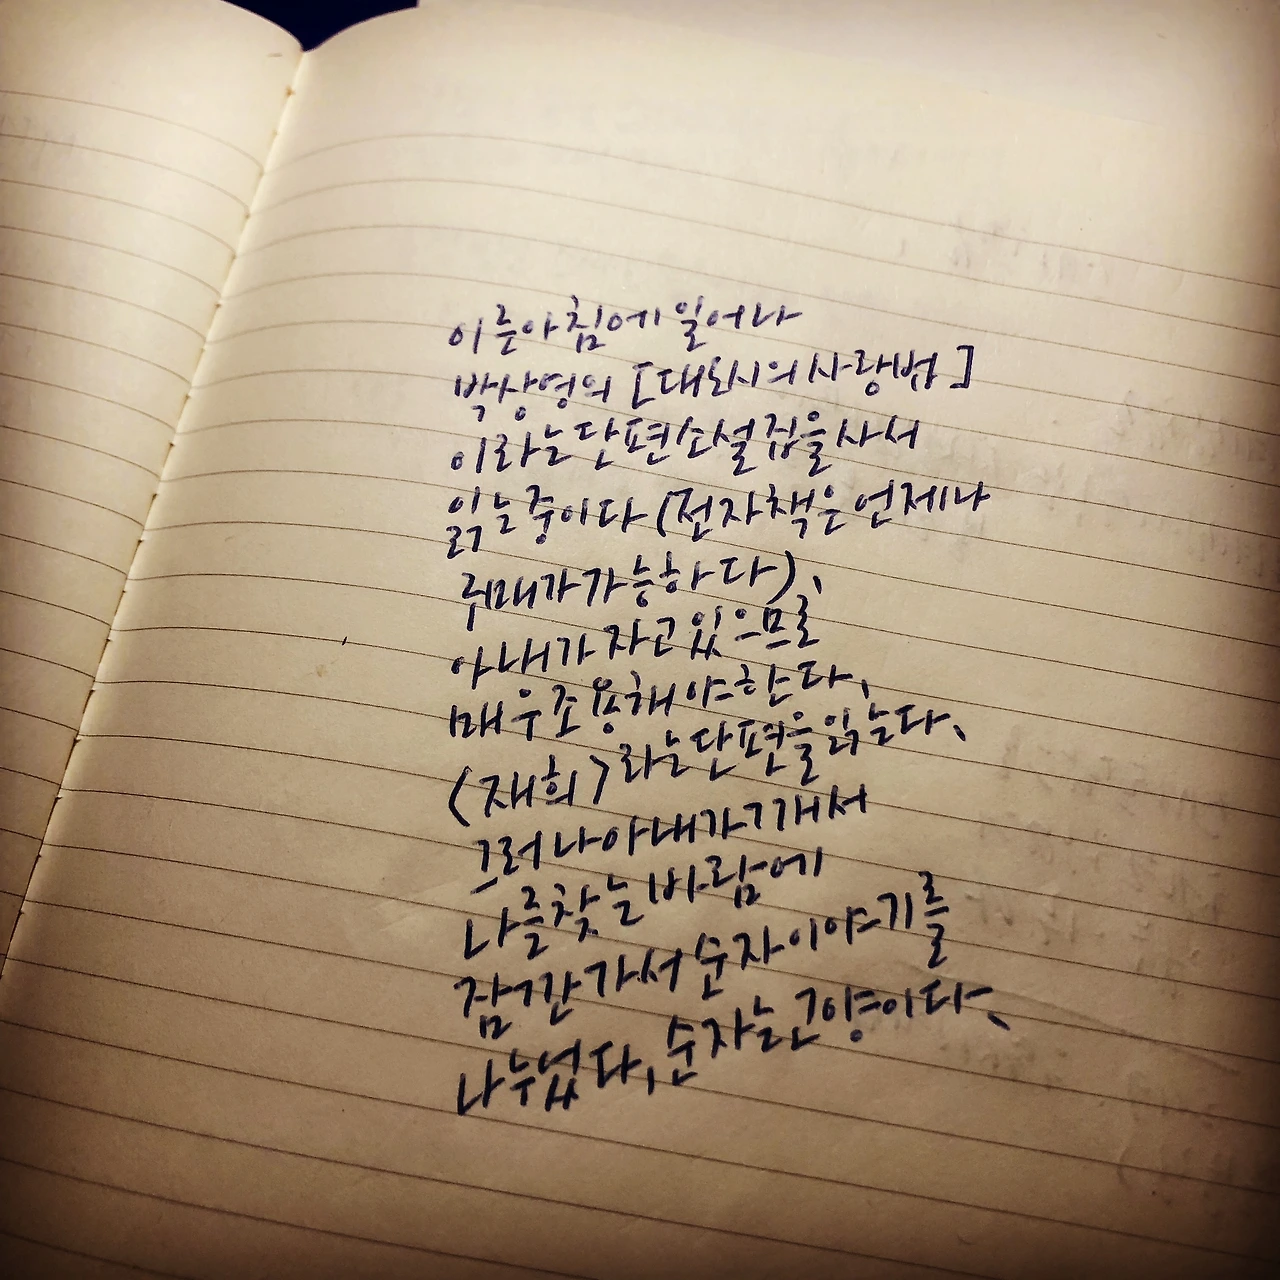 이른 아침에 일어나
박상영의 [대도시의 사랑법]
이라는 단편소설집을 사서
읽는 중이다 (전자책은 언제나
구매가 가능하다).
아내가 자고 있으므로
매우 조용해야 한다,
<재희>라는 단편을 읽는다.
그러나 아내가 깨서
나를 찾는 바람에
잠깐 가서 순자 이야기를
나누었다, 순자는 고양이다.